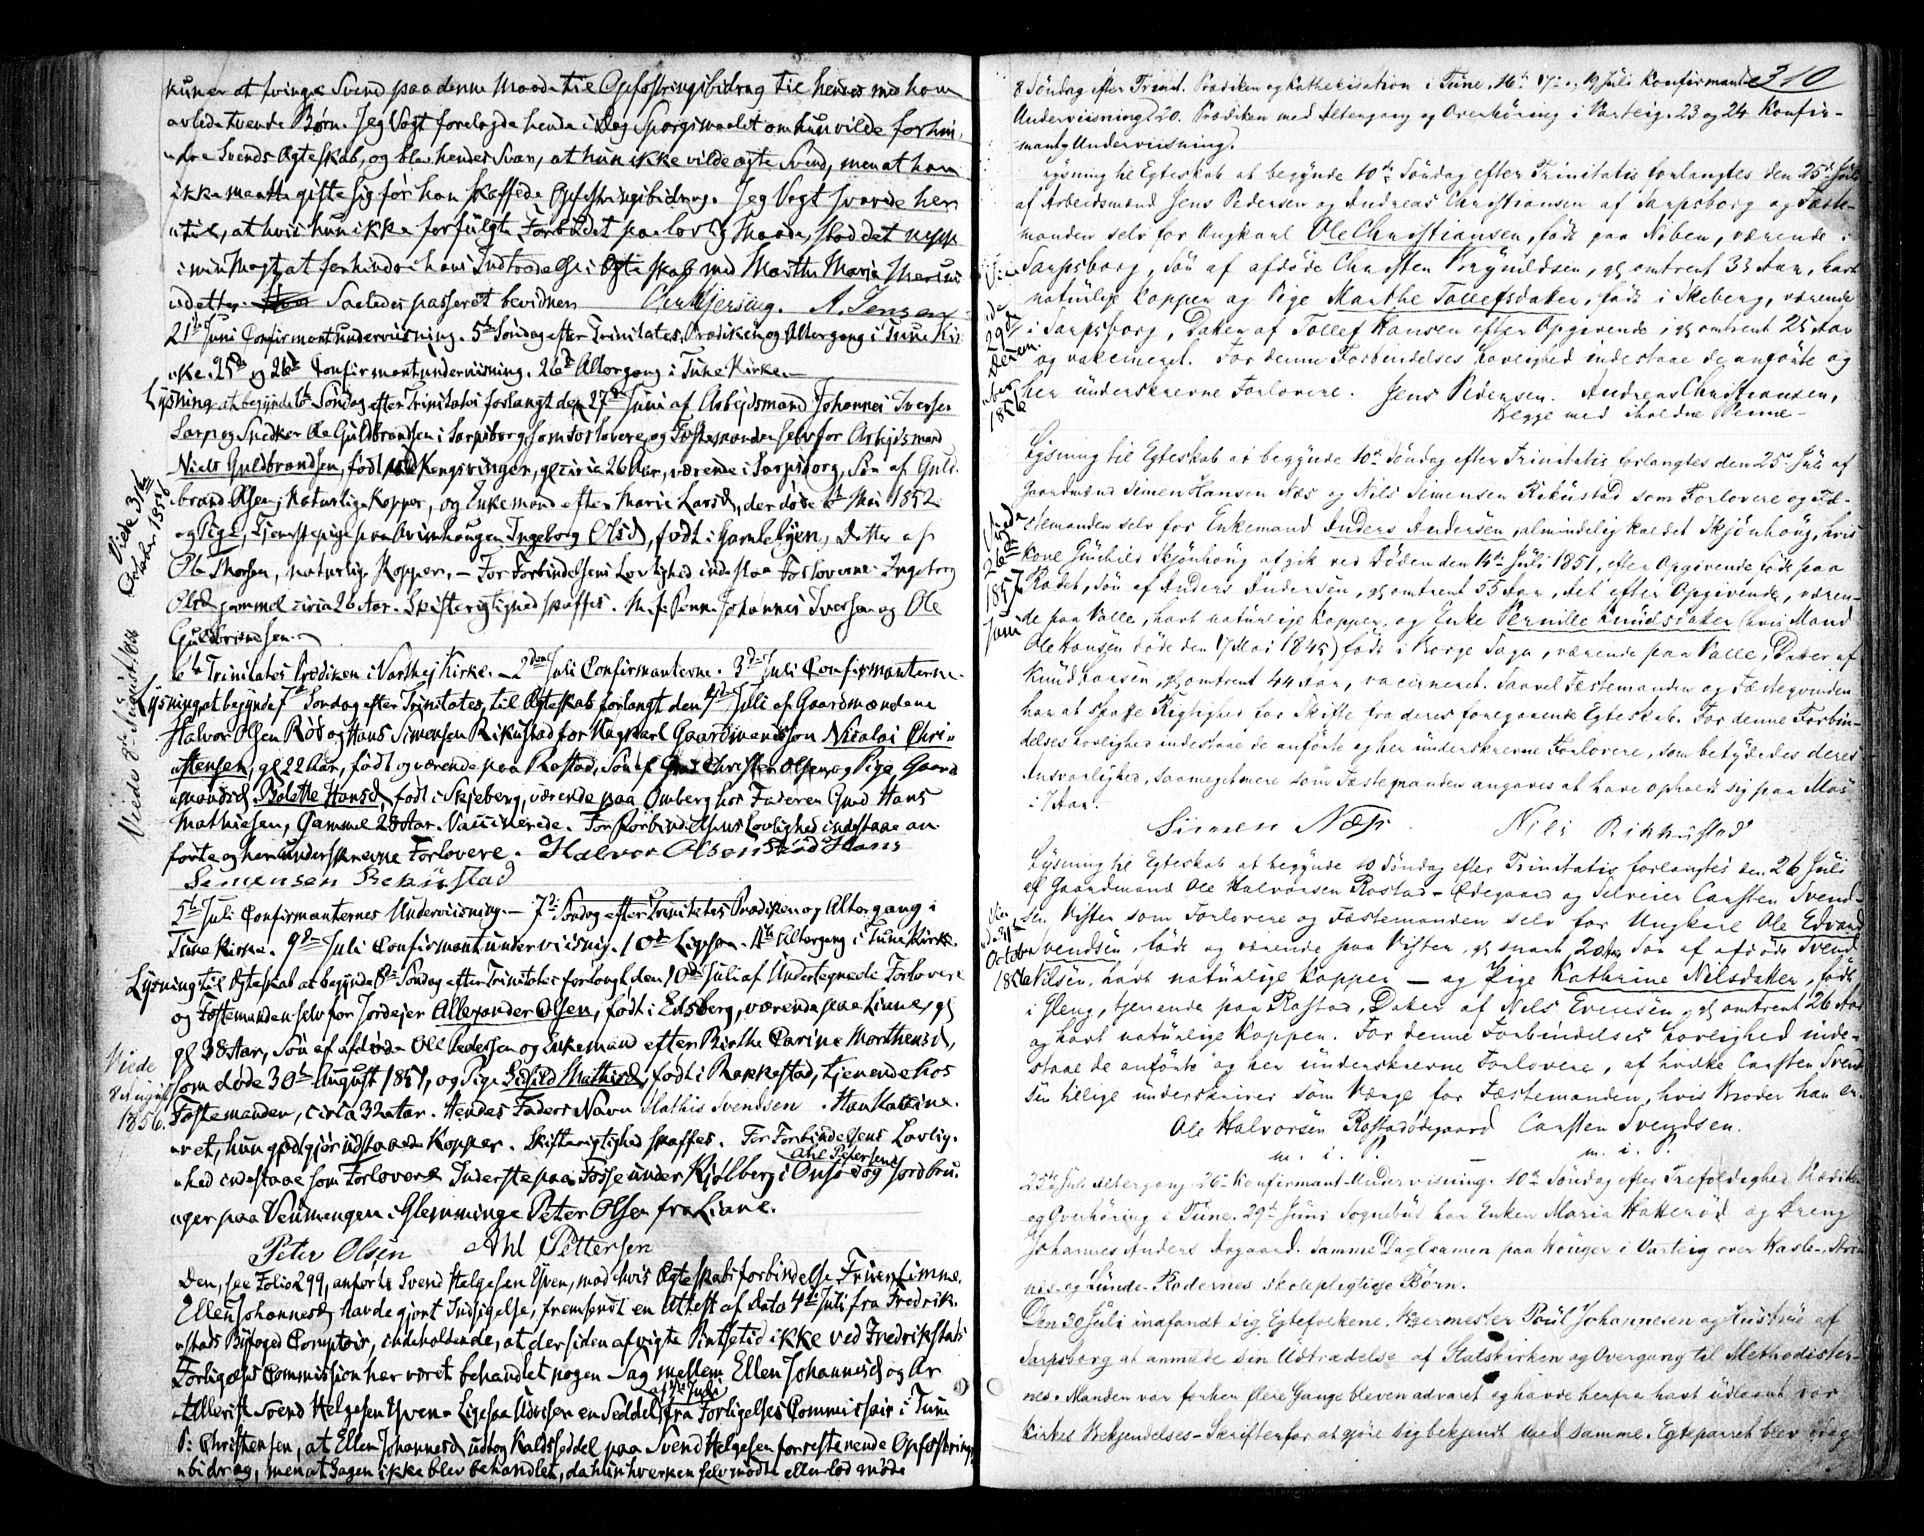 kuner at tvinge Svend paa denne Maade til Opfostringsbidrag til hendes med ham
avlede tvende Børn. Jeg Vogt forelagde hende i Dag Spørgsmaalet om hun vilde forhin-
dre Svends Ægteskab, og blev hendes Svar, at hun ikke vilde ægte Svend, men at han
ikke maatte gifte sig før han skaffede Opfostringsbidrag. Jeg Vogt svarede hen
til, at hvis hun ikke forfulgte Forbudet paa lovlig Maade, stod det neppe
i min Magt, at forhindre hans Indtrædelse i Ægteskab med Marthe Maria
Saaledes passeret bevidnes A. Jensen
21de Juni Confirmantunderviisning. 5te Søndag efter Trinitates, Prædiken og Altergang i Tune Kir-
ke. 25de og 26de Confirmantunderviisning. 26de Altergang i Tune Kirke.
Lysning at begynde 6te Søndag efter Trinitatis forlangt den 27de Juni af Arbejdsmand Johannes Iversen
Sarp og Snedker Ole Guldbrandsen i Sarpsborg som Forlovere, og Fæstemanden selv for Arbejdsmand
Niels Guldbrandsen, født ved Kongsvinger, gl circa 26 Aar, værende i Sarpsborg, Søn af Guld-
brand Olsen, Naturlige Kopper, og Enkemand efter Marie Larsd, der døde 6te Mai 1852
og Pige, Tjenestepige paa Ingeborg Olsd, født i Gamlebyen, Datter af
Ole Thorsen, naturlige Kopper. – For Forbindelsens Lovlighed indestaa Forloverne. Ingeborg
Olsd gammel circa 26 Aar. Skifterigtighed skaffes. m. f. Penn. Johannes Iversen og Ole
Guldbrandsen.
6te Trinitates Prædiken i Varteig Kirke. – 2den Juli Confirmanterne. 3die Juli Confirmanterne.
Lysning at begynde 7de Søndag efter Trinitates, til Ægteskab forlangt den 4de Juli af Gaardmændene
Halvor Olsen Rød og Hans Simensen Rikustad for Ungkarl Gaardmandssøn Nicolai Chri-
stensen, gl 22 Aar, født og værende paa Rostad, Søn af Christen Olsen, og Pige, Gaard-
mandsd. Bolette Hansd, født i Skjeberg, værende paa Omberg hos Faderen Gmd Hans
Mathiesen, Gammel 28 Aar. Vaccinerede. For Forbindelsens Lovlighed indestaae an-
førte og her underskrevne Forlovere. Halvor Olsen Hans
Semensen Rekustad
5te Juli Confirmanternes Underviisning. – 7de Søndag efter Trinitates Prædiken og Altergang i
Tune Kirke. 9de Juli Confirmantunderviisnig. 10de Ligesom. 11te Altergang i Tune Kirke.
Lysning til Ægteskab at begynde 8de Søndag efter Trinitatis forlangt den 10de Juli af Undertegnede Forlovere
og Fæstemanden selv for Jordejer Allexander Olsen, født i Edsberg, værende paa Liane,
gl 38 Aar, Søn af afdøde Ole Pedersen og Enkemand efter Birthe Carine Morthensd,
som døde 30te August 1851, og Pige Sisild Mathisd, født i Rakkestad, tjenende hos
Fæstemanden, circa 32 Aar. Hendes Faders Navn Mathis Svendsen. Han Vaccine-
ret, hun godtgjør udstaaede Kopper. Skifterigtighed skaffes. For Forbindelsens Lovlig-
hed indestaae som Forlovere Inderste paa Fosse under Kjølberg i Onsø Ahl Petersen og Jordbru-
ger paa Venmengen i Glemminge Peter Olsen fra Liane.
Peter Olsen Ahl Pettersen
Den, see Folio 299, anførte Svend Helgesen Yven, mod hvis Ægteskabsforbindelse Fruentimme-
Ellen Johannesd havde gjort Indsigelse, fremsendt en Attest af Dato 4de Juli fra Fredrik-
stads Byfoged Comptoir, indeholdende, at der siden afvigte Pintsetid ikke ved Fredrikstads
Forligelses Commission har været behandlet nogen Sag mellem Ellen Johannesd og Ar-
tillerist Svend Helgesen Yven. Ligesaa Udviser en Seddel af 7de Juli fra Forligelses Commissair i Tune
P: Christensen, at Ellen Johannesd udtog Kaldsseddel paa Svend Helgesen for resterende Opfostrings-
bidrag, men at Sagen ikke blev behandlet, da hun hverken selv mødte eller lod møde
Viede 31te
October 1856
Viede 8de August 1856
Viede
8 August
1856.
310
8 Søndag efter Trinit. Prædiken og Kathekisation i Tune. 16de 17de og 19 Juli Konfirmand-
Underviisning. 20. Prædiken med Altergang og Overhøring i Varteig. 23 og 24 Konfir-
mant Underviisning.
Lysning til Egteskab at begynde 10de Søndag efter Trinitatis forlangtes den 25de Juli
af Arbeidsmænd Jens Pedersen og Andreas Christiansen af Sarpsborg og Fæste-
manden selv for Ungkarl Ole Christiansen, født paa Viben, værende i
Sarpsborg, Søn af afdøde Christen Brynildsen, gl omtrent 33 Aar, havt
naturlige Kopper og Pige Marthe Tollefsdater, født i Skeberg, værende
i Sarpsborg, Dater af Tollef Hansen efter Opgivende, gl omtrent 25 Aar
og vakcineret. For denne Forbindelses Lovlighed indestaae de anførte og
her underskrevne Forlovere. Jens Pedersen. Andreas Christiansen,
begge med iholdne Penne.
Lysning til Egteskab at begynde 10de Søndag efter Trinitatis forlangtes den 25de Juli af
Gaardmænd Simen Hansen Næs og Nils Simensen Rikustad som Forlovere og Fæ-
stemanden selv for Enkemand Anders Andersen, almindelig kaldet Skjønhaug, hvis
Kone Gunhild Skjønhaug afgik ved Døden den 14de Juli 1851, efter Opgivende født paa
Rødet, Søn af Anders Andersen, gl omtrent 55 Aar, det efter Opgivende, væren-
de paa Valle, havt naturlige Kopper, og Enke Pernille Knudsdater (hvis Mand
Ole Hansen døde den 17 Mai 1845) født i Borge Sogn, værende paa Valle, Dater af
Knud Hansen, gl omtrent 44 Aar, vaccineret. Saavel Fæstemanden og Fæstegvinden
har at skaffe Rigtighed for Skifte fra deres foregaaende Egteskab. For denne Forbin-
delses Lovlighed indestaae de anførte og her underskrevne Forlovere, som betydedes deres
Ansvarlighed, saameget mere som Fæstemanden angaves at have opholdt sig paa Mos
i 7 Aar.
Simen Næs. Nils Rikkustad
Lysning til Egteskab at begynde 10 Søndag efter Trinitatis forlangtes den 26 Juli
af Gaardmand Ole Halvorsen Rostad-Ødegaard og Selveier Carsten Svend-
sen Visten som Forlovere og Fæstemanden selv for Ungkarl Ole Edvard
Svendsen, født og værende paa Visten, gl snart 20 Aar, Søn af afdøde Svend
Nilsen, havt naturlige Kopper – og Pige Kathrine Nilsdater, født
i Gleng, tjenende paa Rostad, Dater af Nils Evensen, gl omtrent 26 Aar
og havt naturlige Kopper. For denne Forbindelses Lovlighed inde-
staae de anførte og her underskrevne Forlovere, af hvilke Carsten Svend-
sen tillige underskriver som Værge for Fæstemanden, hvis Broder han er.
Ole Halvorsen Rostadødegaard Carsten Svendsen.
m. i. P. – m. i. P.
25de Juli Altergang. 26de Konfirmant-Underviisning. 10de Søndag efter Trefoldighed Prædiken
og Overhøring i Tune. 29de Juni Sognebud hos Enken Maria Hatterød og Dreng
Johannes Anders Aagaard. Samme Dag Examen paa Houger i Varteig over Hasle-
næs og Lunde-Rodernes skolepligtige Børn.
Den 30 Juli indfandt sig Egtefolkene, Poul Johannesen og Hustrue af
Sarpsborg at anmelde sin Udtrædelse af Statskirken og Overgang til Methodister-
ne. Manden var forhen flere Gange bleven advaret og havde herfra havt udlaant vor
Kirkes Bekjendelses-Skrifter for at gjøre sig bekjendt med samme. Egteparret blev idag
29de
1856
Viede
26de
1857
Juni
October
1856